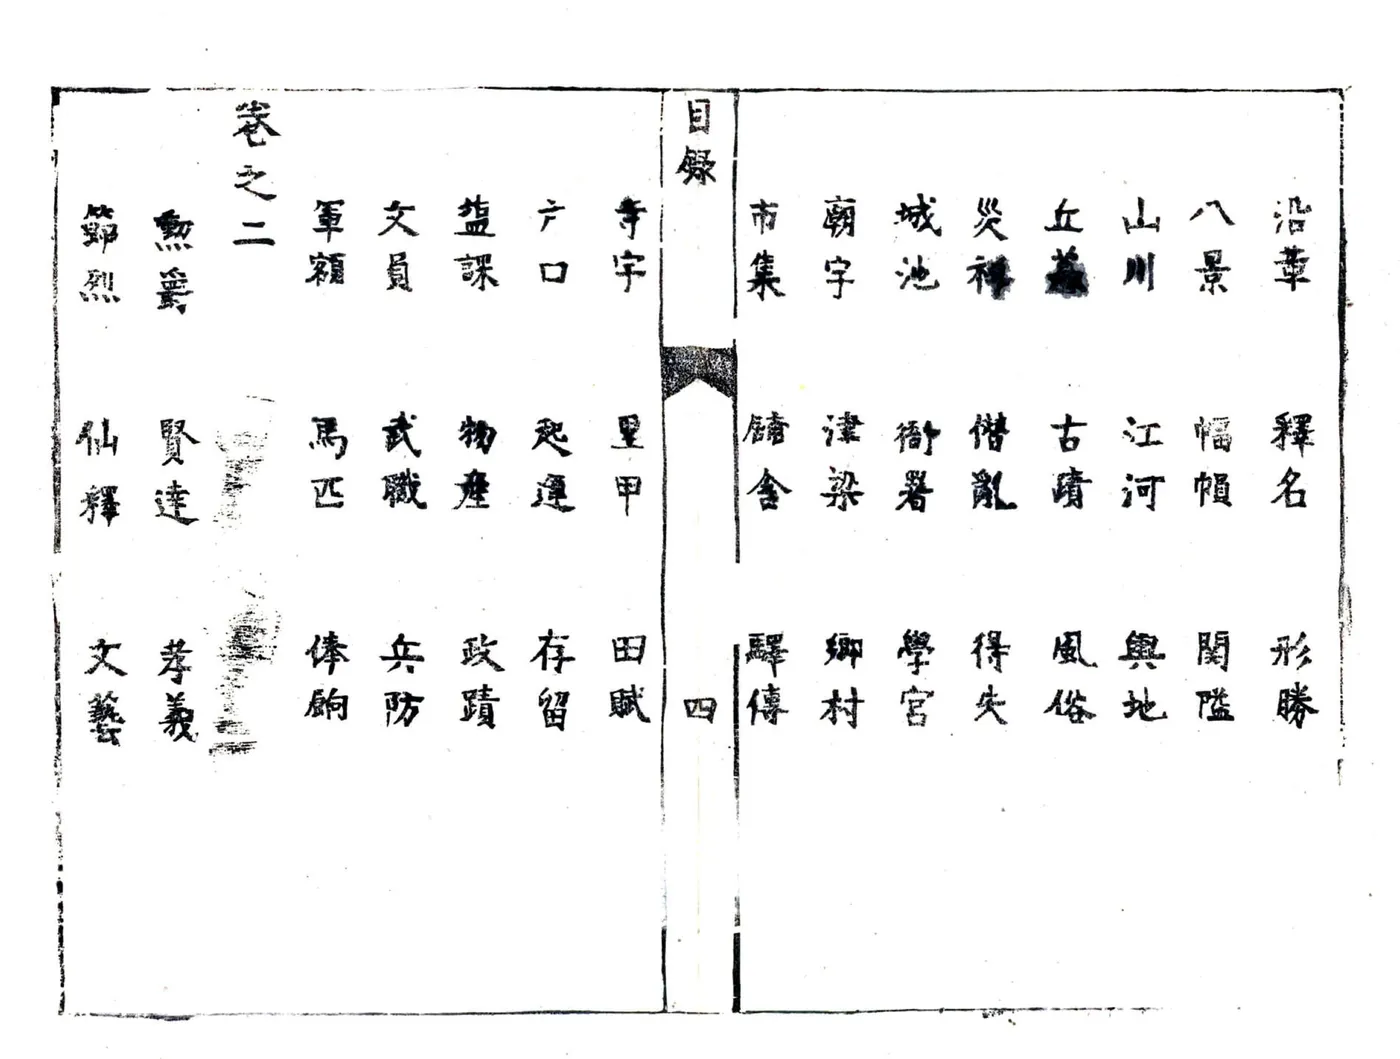 沿革 釋名 形勝
八景 幅幁 関隘
山川 江河 輿地
丘墓 古蹟 風俗
災祥 僭亂 得失
城池 衙署 學宮
廟宇 津梁 鄉村
市集 舖舍 驛傳
目錄 四
寺宇 里甲 田賦
户口 起運 存留
塩課 物產 政蹟
文員 武職 兵防
軍額 馬匹 俸餉
卷之二
勲爵 賢達 孝義
節烈 仙釋 文藝